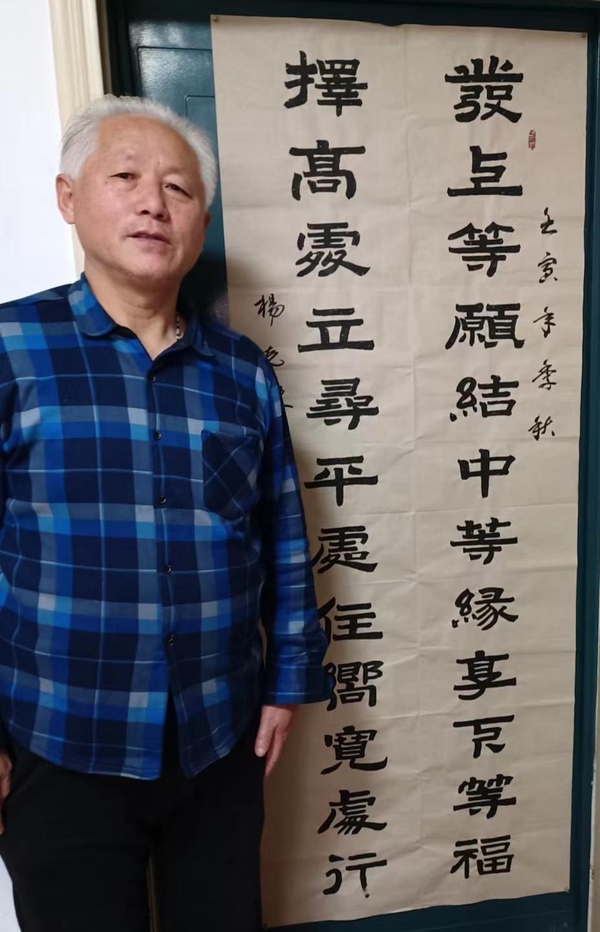 壬寅年季秋
發上等願結中等緣享下等福
擇髙處立尋平處住嚮寬處行
楊